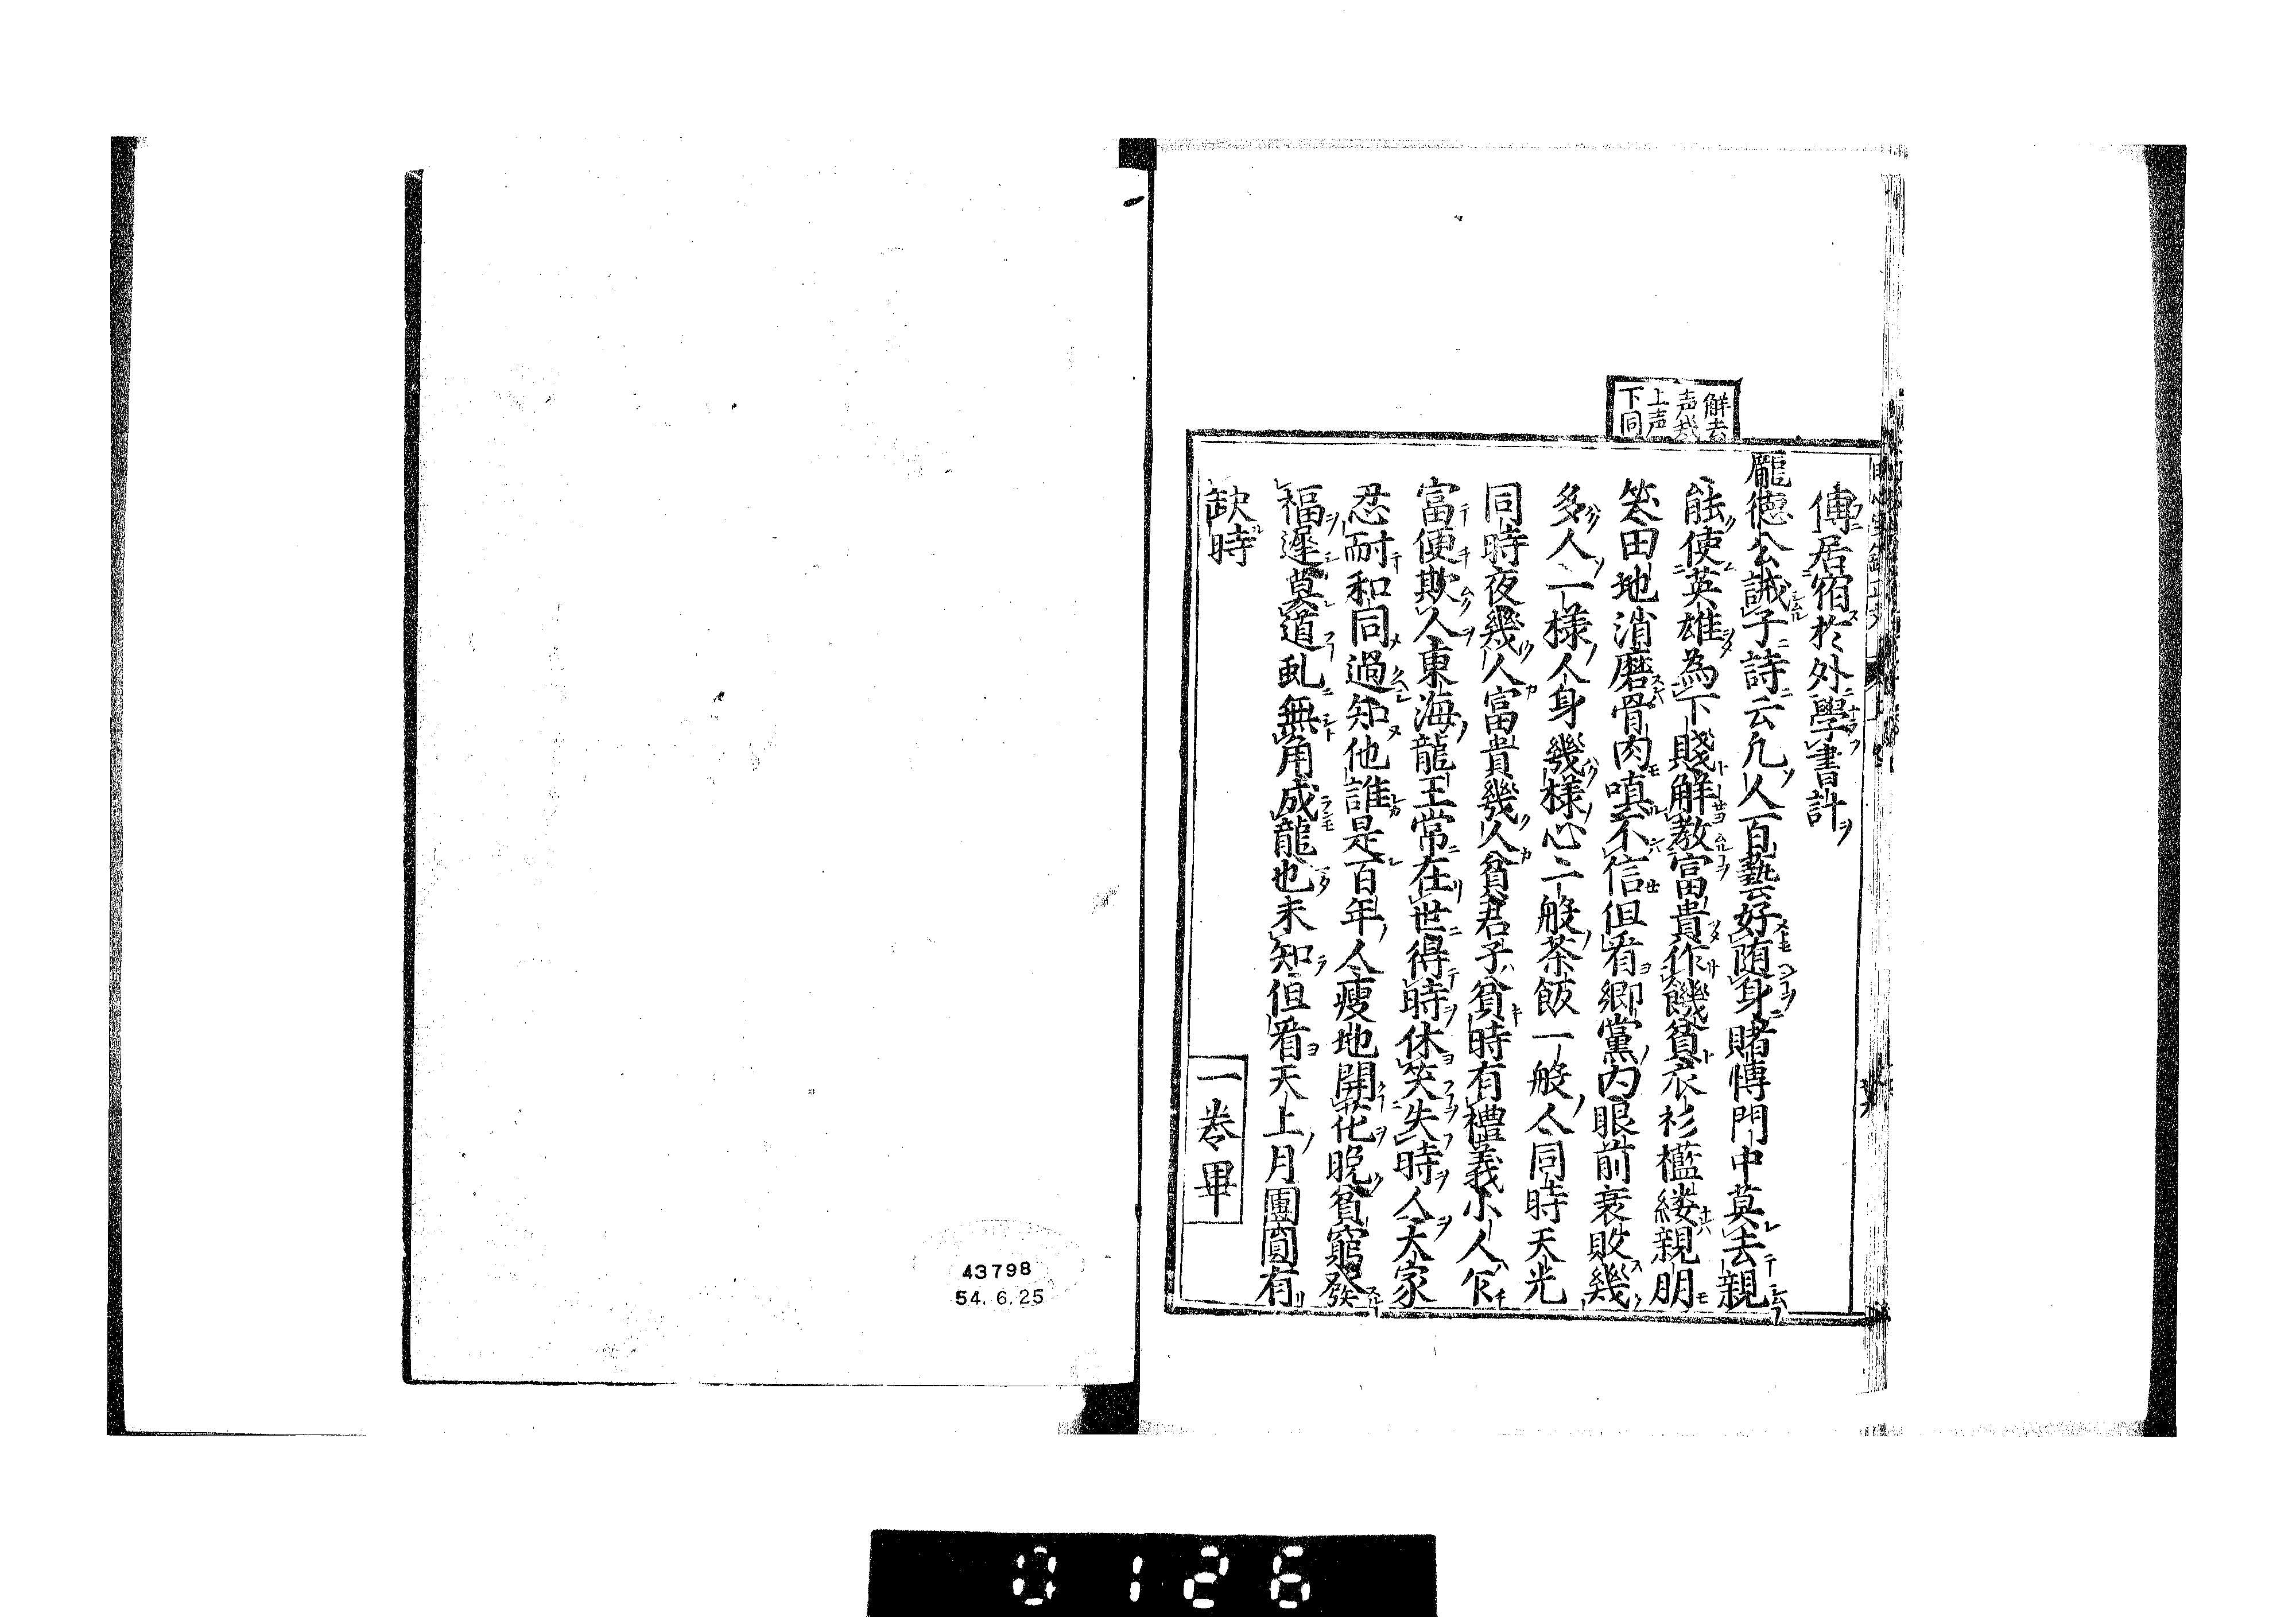 解去
声哉
上声
下同
傅居宿於外學書計
龐德公誡子詩云凢人百藝好随身賭博門中莫去親
能使英雄為下賤解教富貴作饑貧衣衫襤縷親朋
笑田地消磨骨肉嗔不信但看郷黨内眼前衰敗幾
多人一樣人身幾樣心二般茶飯一般人同時天光
同時夜幾人富貴幾人貧君子貧時有禮義小人乍
富便欺人東海龍王常在世得時休笑失時人大家
忍耐和同過知他誰是百年人瘦地開花晩貧窮發
福遲莫道虬無角成龍也未知但看天上月團圓有
缺時
一卷畢
43798
54. 6. 25
0126